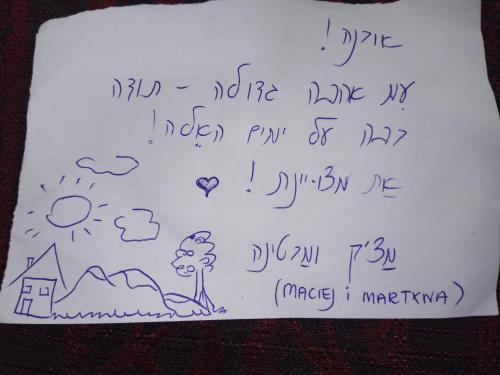 אורנה!
עִם אהבה גדולה - תודה
רבה על ימים האֵלה!
אַת מצויינת!
מַצ׳ק ומַרטינה
(MACIEJ i MARTYNA)